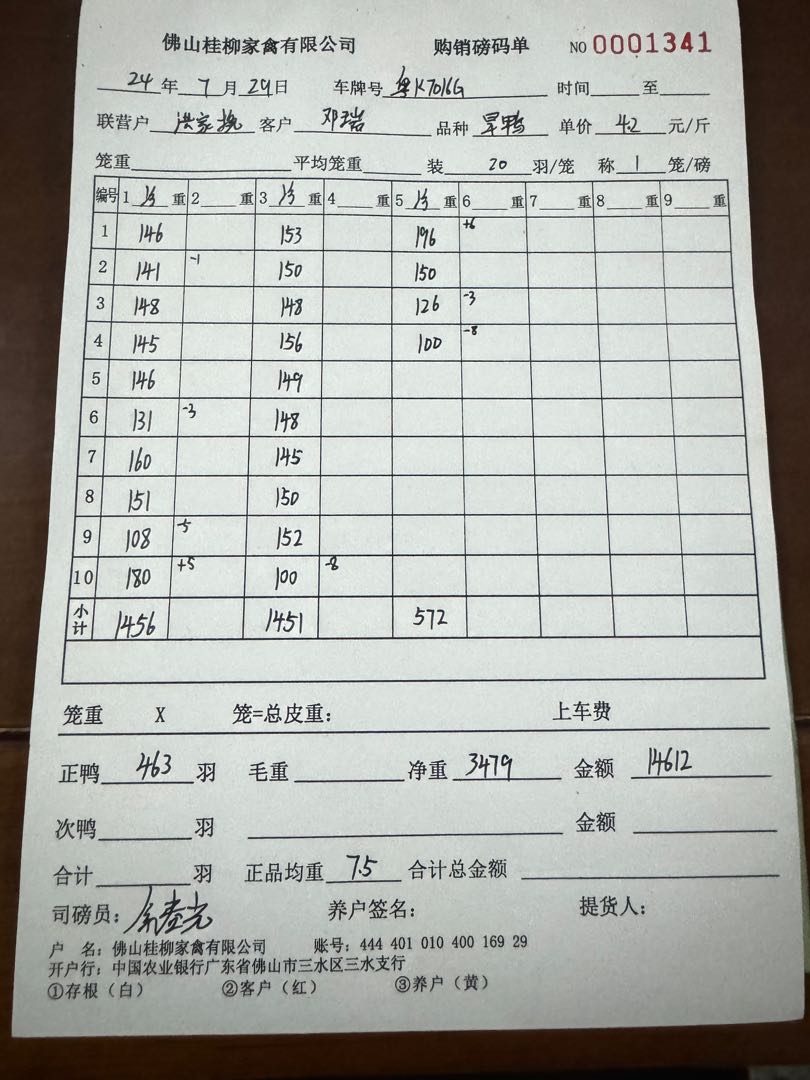 佛山桂柳家禽有限公司 购销磅码单 NO 0001341
24年 7月 29日 车牌号 粤K7016G 时间 至
联营户 洪家 客户 邓瑞 品种 旱鸭 单价 4.2 元/斤
笼重 平均笼重 装 20 羽/笼 称 1 笼/磅
编号 1 净 重 2 重 3 净 重 4 重 5 净 重 6 重 7 重 8 重 9 重
1 146 153 196 +6
2 141 -1 150 150
3 148 148 126 -3
4 145 156 100 -8
5 146 149
6 131 -3 148
7 160 145
8 151 150
9 108 -5 152
10 180 +5 100 -8
小计 1456 1451 572
笼重 X 笼=总皮重： 上车费
正鸭 463 羽 毛重 净重 3479 金额 14612
次鸭 羽 金额
合计 羽 正品均重 7.5 合计总金额
司磅员： 养户签名： 提货人：
户 名：佛山桂柳家禽有限公司 账号：444 401 010 400 169 29
开户行：中国农业银行广东省佛山市三水区三水支行
①存根（白） ②客户（红） ③养户（黄）